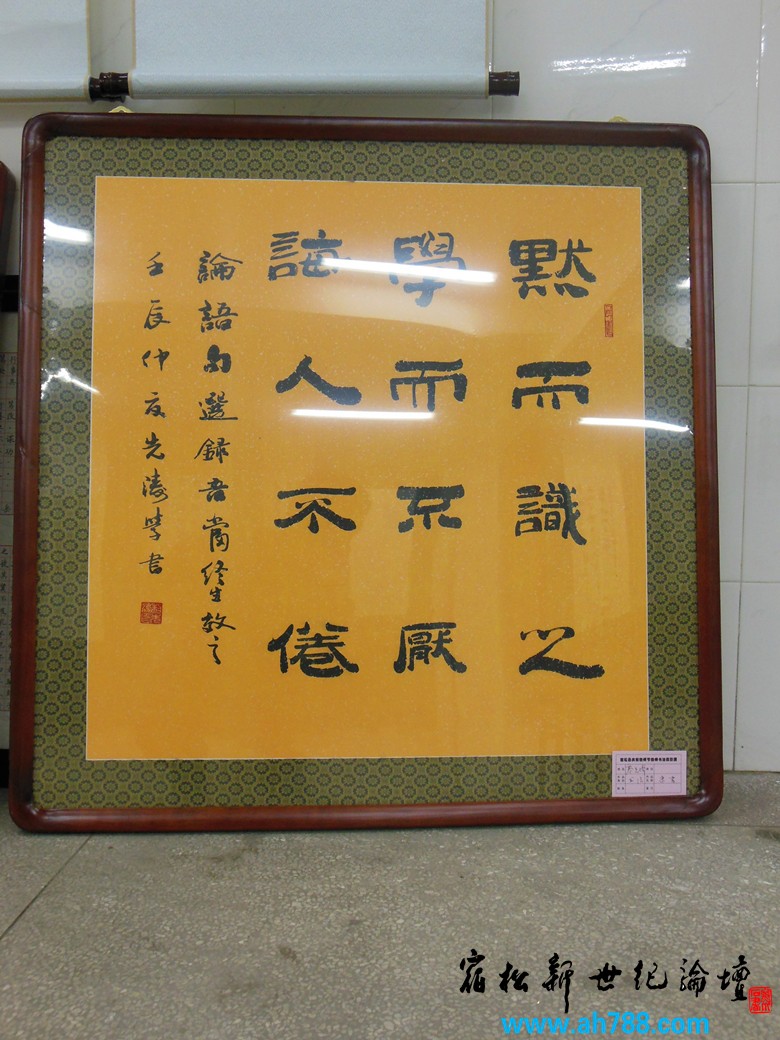 默而識之
學而不厭
誨人不倦
論語句選録吾當終生效之
壬辰仲夏先濤學書
宿松新世纪論壇
www.ah788.com